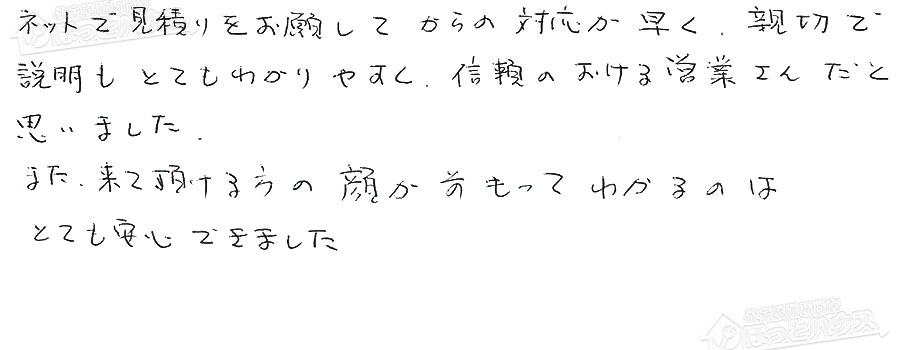 ネットで見積りをお願いしてからの対応が早く、親切で
説明もとてもわかりやすく、信頼のおける営業さんだと
思いました。
また、来て頂ける方の顔が前もってわかるのは
とても安心できました
ほっとハウス